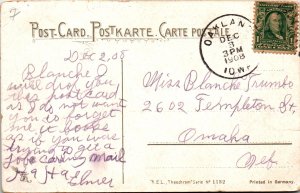 7
POST-CARD. POSTKARTE. CARTE POSTALE
OAKLAN
DEC
3
3 PM
1908
IOWA
Dec 2, 08
Blanche I
will drop you
this post card
as I do not
want you to
forget
me it looks
as if you were
trying to get a
job carrying mail
Ha Ha Elmer
Miss Blanche Trumbo
2602 Templeton St
Omaha
Neb.
Serie No 1182
Printed in Germany